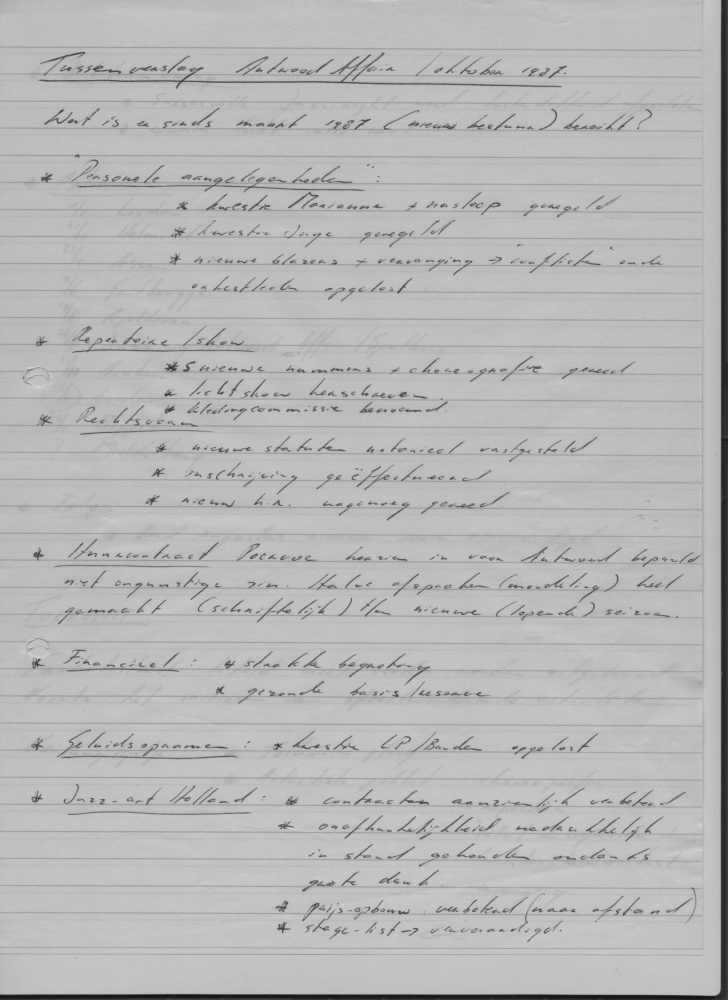 Tussenverslag Antwood Affair 1 oktober 1987.
Wat is er sinds maart 1987 (nieuw bestuur) bereikt?
* "Personele aangelegenheden":
* kwestie Marianne + nasleep geregeld
* kwestie Inge geregeld
* nieuwe blazers + vervanging → "conflicten" oude
orkestleden opgelost
* Repertoire / show
* 5 nieuwe nummers + choreografie gereed
* lichtshow herschreven.
* kledingcommissie benoemd.
* Rechtsvorm
* nieuwe statuten notarieel vastgesteld
* inschrijving geëffectueerd
* nieuw h.r. nagenoeg gereed
* Huurcontract herzien in voor Antwood bepaald
niet ongunstige zin. Halve afspraken (mondeling) heel
gemaakt (schriftelijk) nieuwe (lopende) seizoen.
* Financieel: * strakke begroting
* gezonde basis / reserve
* Geluidsopnamen: * kwestie LP/Banden opgelost
* Jazz-art Holland: * contracten aanzienlijk verbeterd
* onafhankelijkheid nadrukkelijk
in stand gehouden ondanks
grote druk.
* prijs-opbouw verbeterd (naar afstand)
* stage-list → vervaardigd.